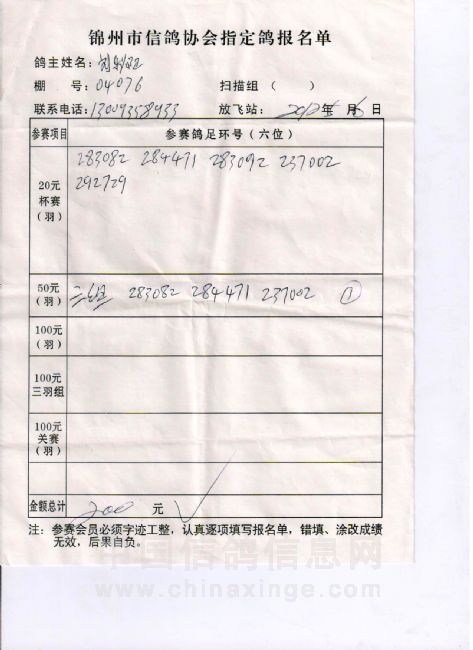 锦州市信鸽协会指定鸽报名单
鸽主姓名:
棚 号: 04076 扫描组 ( )
联系电话: 13009358933 放飞站: 年 月 日
参赛项目 参赛鸽足环号(六位)
20元 杯赛 (羽) 283082 284471 283092 237002
292729
50元 (羽) 三组 283082 284471 237002 ①
100元 (羽)
100元 三羽组
100元 关赛 (羽)
金额总计 200 元
注: 参赛会员必须字迹工整, 认真逐项填写报名单, 错填、涂改成绩
无效, 后果自负。
中国信鸽信息网
www.chinaxinge.com